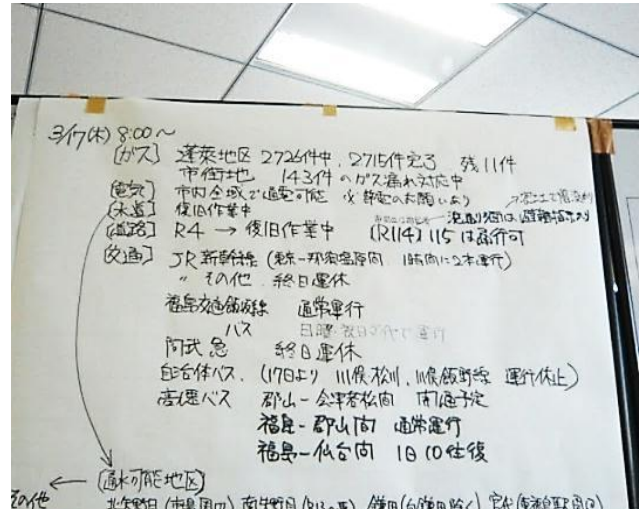 3/17(木) 8:00〜
[ガス] 蓬莱地区 2726件中、2715件完了 残11件
市街地 143件のガス漏れ対応中
[電気] 市内全域で通電可能 ※節電のお願いより
[水道] 復旧作業中
[道路] R4 → 復旧作業中 (R114) 115は通行可
[交通] JR新幹線 (東京-那須塩原間 1時間に2本運行)
〃 その他 終日運休
福島交通飯坂線 通常運行
バス 日曜・祝日ダイヤで運行
阿武急 終日運休
自治体バス (17日より 川俣松川、川俣飯野線 運行休止)
高速バス 郡山-会津若松間 開通予定
福島-郡山間 通常運行
福島-仙台間 1日10往復
(通水可能地区)
その他